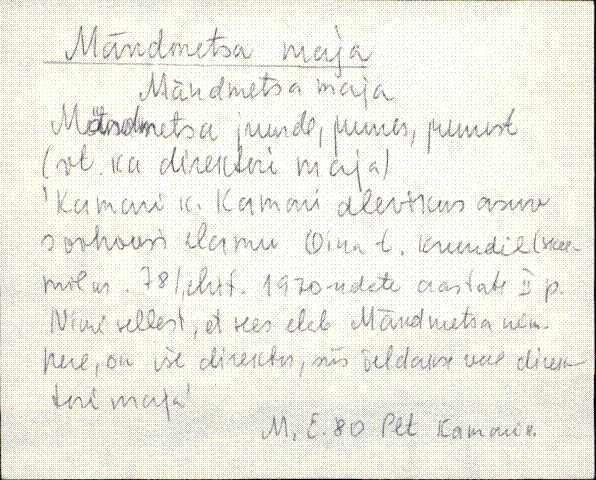 Mändmetsa maja
Mändmetsa maja
Mändmetsa juurde, juures, juurest
(vt. ka direktori maja)
'Kamari k. Kamari alevikus asuv
sovhoosi elamu Oina t. krundil (
. 78), ehit. 1970-ndate aastate II p.
Nimi sellest, et sees elab Mändmetsa pere,
on ise direktor, siis öeldakse veel direk-
tori maja'
M. E. 80 Plt Kamari k.